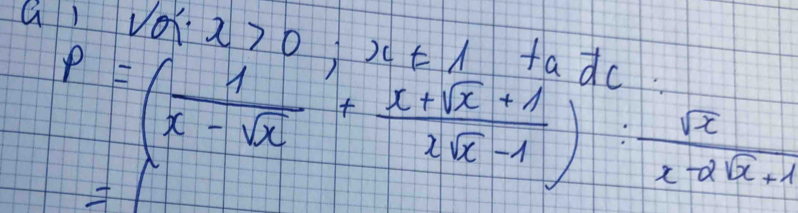 a) Với x > 0 ; x ≠ 1 ta đc :
P = ( 1/(x - √x) + (x + √x + 1)/(x√x - 1) ) : √x/(x - 2√x + 1)
= (